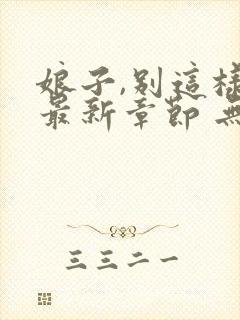 娘子,別這樣
最新章節 無
三三二一